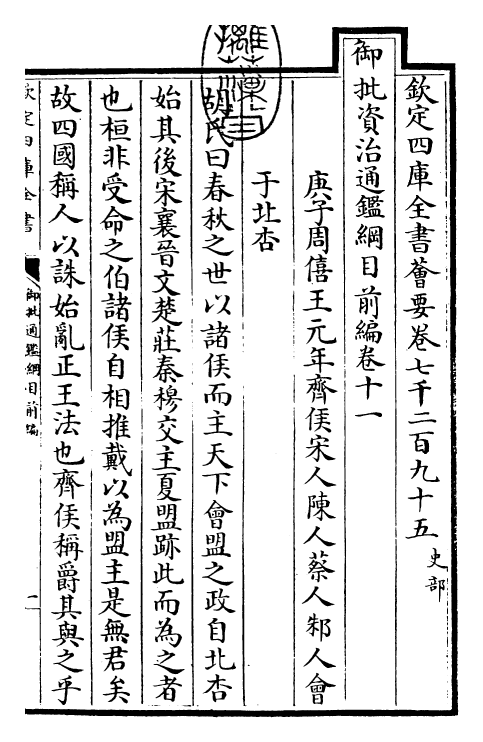 欽定四庫全書薈要卷七千二百九十五 史部
御批資治通鑑綱目前編卷十一
庚子周僖王元年齊侯宋人陳人蔡人邾人會
于北杏
胡氏曰春秋之世以諸侯而主天下會盟之政自北杏
始其後宋襄晉文楚莊秦穆交主夏盟跡此而為之者
也桓非受命之伯諸侯自相推戴以為盟主是無君矣
故四國稱人以誅始亂正王法也齊侯稱爵其與之乎
欽定四庫全書
御批通鑑綱目前編
一